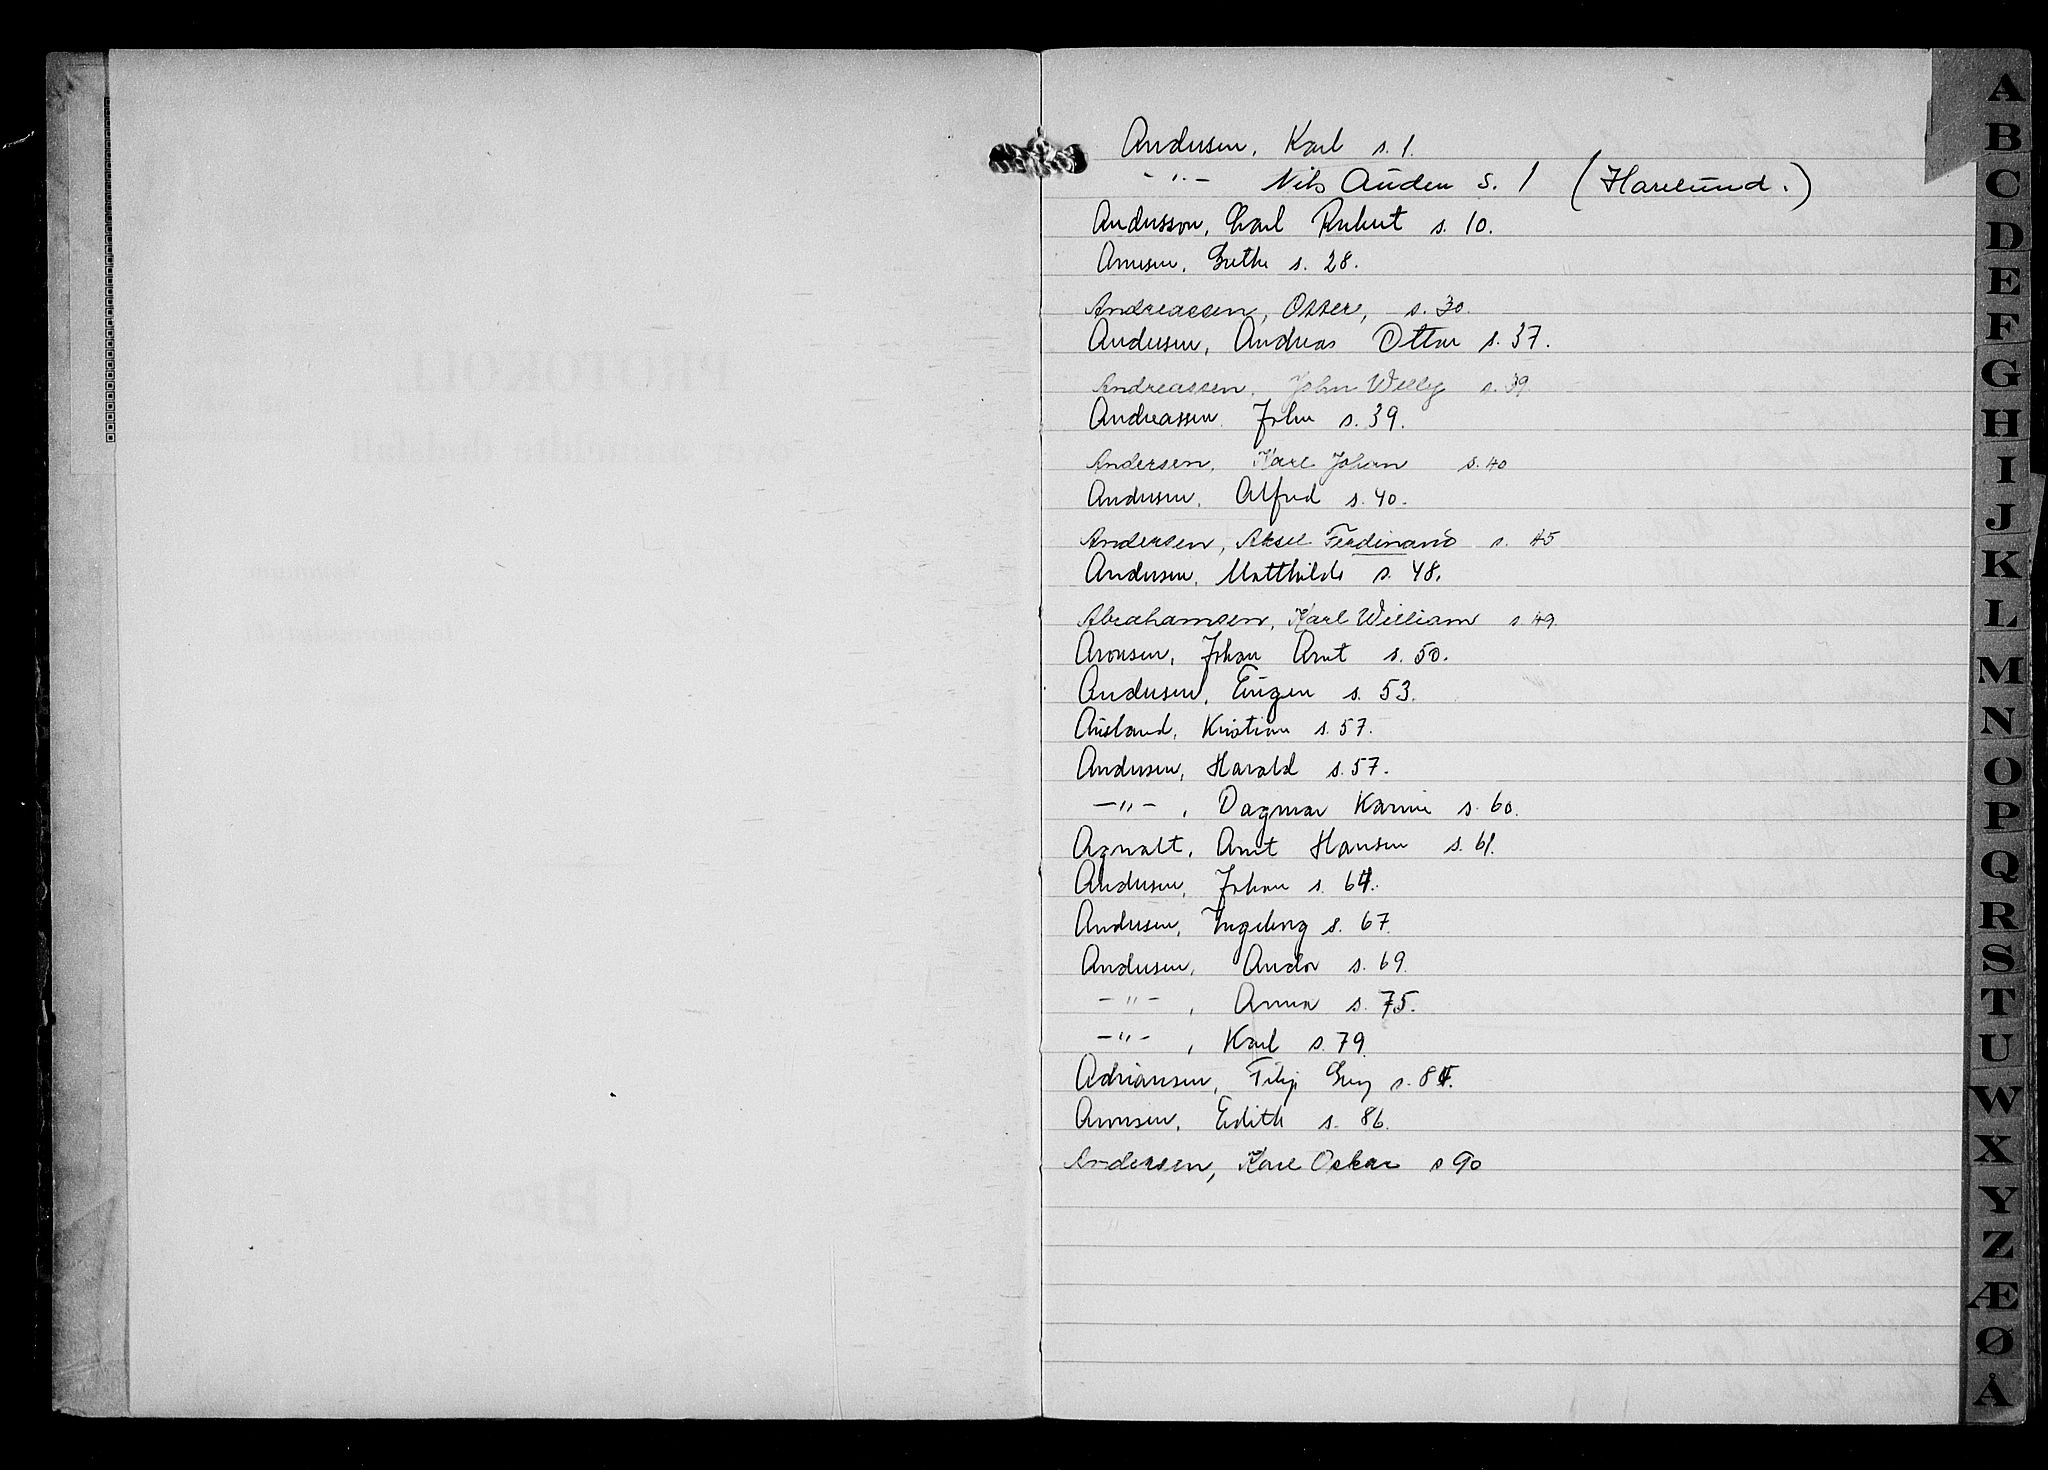 Andersen, Karl s. 1.
-"- Nils Auden s. 1 (Harelund.)
Andersson, Carl Robert s. 10.
Arnesen, Grethe s. 28.
Andreassen, Osser, s. 30.
Andersen, Andreas Ottar s. 37.
Andreassen, John Willy s. 39
Andreassen John s. 39.
Andersen, Karl Johan s. 40
Andersen, Alfred s. 40.
Andersen, Aksel Ferdinand s. 45
Andersen, Matthilde s. 48.
Abrahamsen, Karl William s 49.
Aronsen, Johan Arnt s. 50.
Andersen, Eugen s. 53.
Ausland, Kristian s. 57.
Andersen, Harald s. 57.
-"-, Dagmar Karine s. 60.
Agnalt, Arnt Hansen s. 61.
Andersen, Johan s. 64.
Andersen, Ingeborg s. 67.
Andersen, Andor s. 69.
-"-, Anna s. 75.
-"-, Karl s. 79.
Adriansen, Filip s. 84.
Aronsen, Edith s. 86.
Andersen, Karl Oskar s 90
A
B
C
D
E
F
G
H
I
J
K
L
M
N
O
P
Q
R
S
T
U
W
X
Y
Z
Æ
Ø
Å